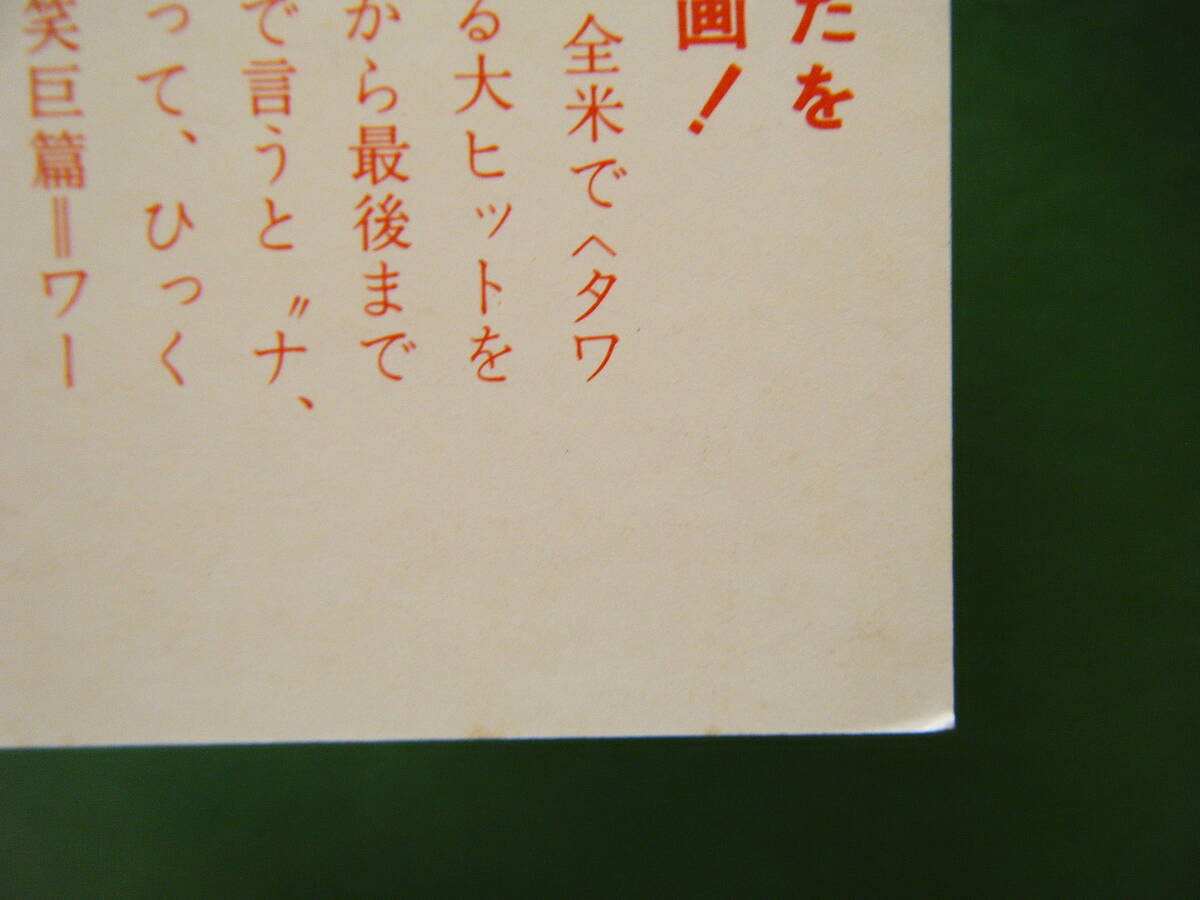 たを
画!
全米で〈タワ
る大ヒットを
から最後まで
で言うと〝ナ、
って、ひっく
笑巨篇＝ワー